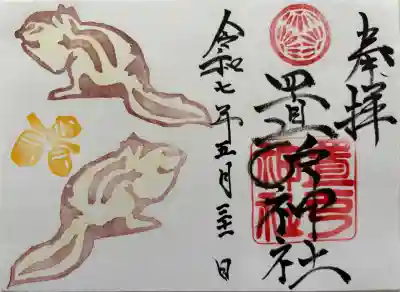 奉拝
置戸神社
令和七年五月 日